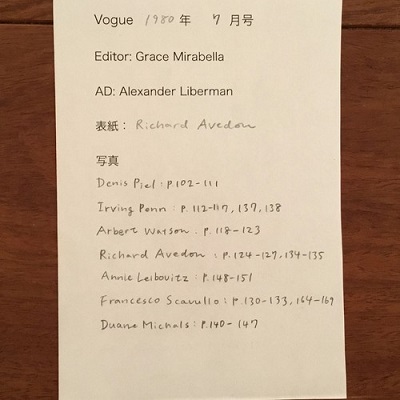 Vogue 1980 年 7 月号
Editor: Grace Mirabella
AD: Alexander Liberman
表紙： Richard Avedon
写真
Denis Piel : p.102-111
Irving Penn : p.112-117, 137, 138
Arbert Watson : p.118-123
Richard Avedon : p.124-127, 134-135
Annie Leibovitz : p.148-151
Francesco Scavullo : p.130-133, 164-169
Duane Michals : p.140-147